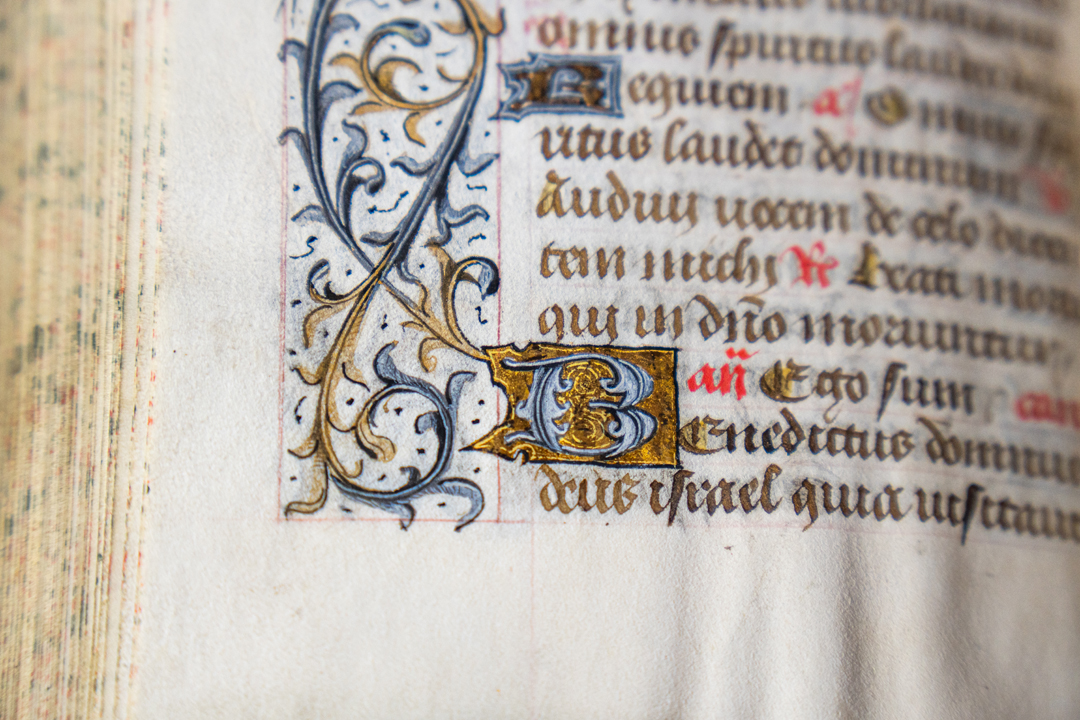 omnius spiritus laudet
Requiem a Omnis
ritus laudet dominum
Audivi vocem de celo dicen
tem michi R Beati mortu
qui in dño moriuntur
añ Ego sum can
Benedictus dominus
deus israel quia visitavit